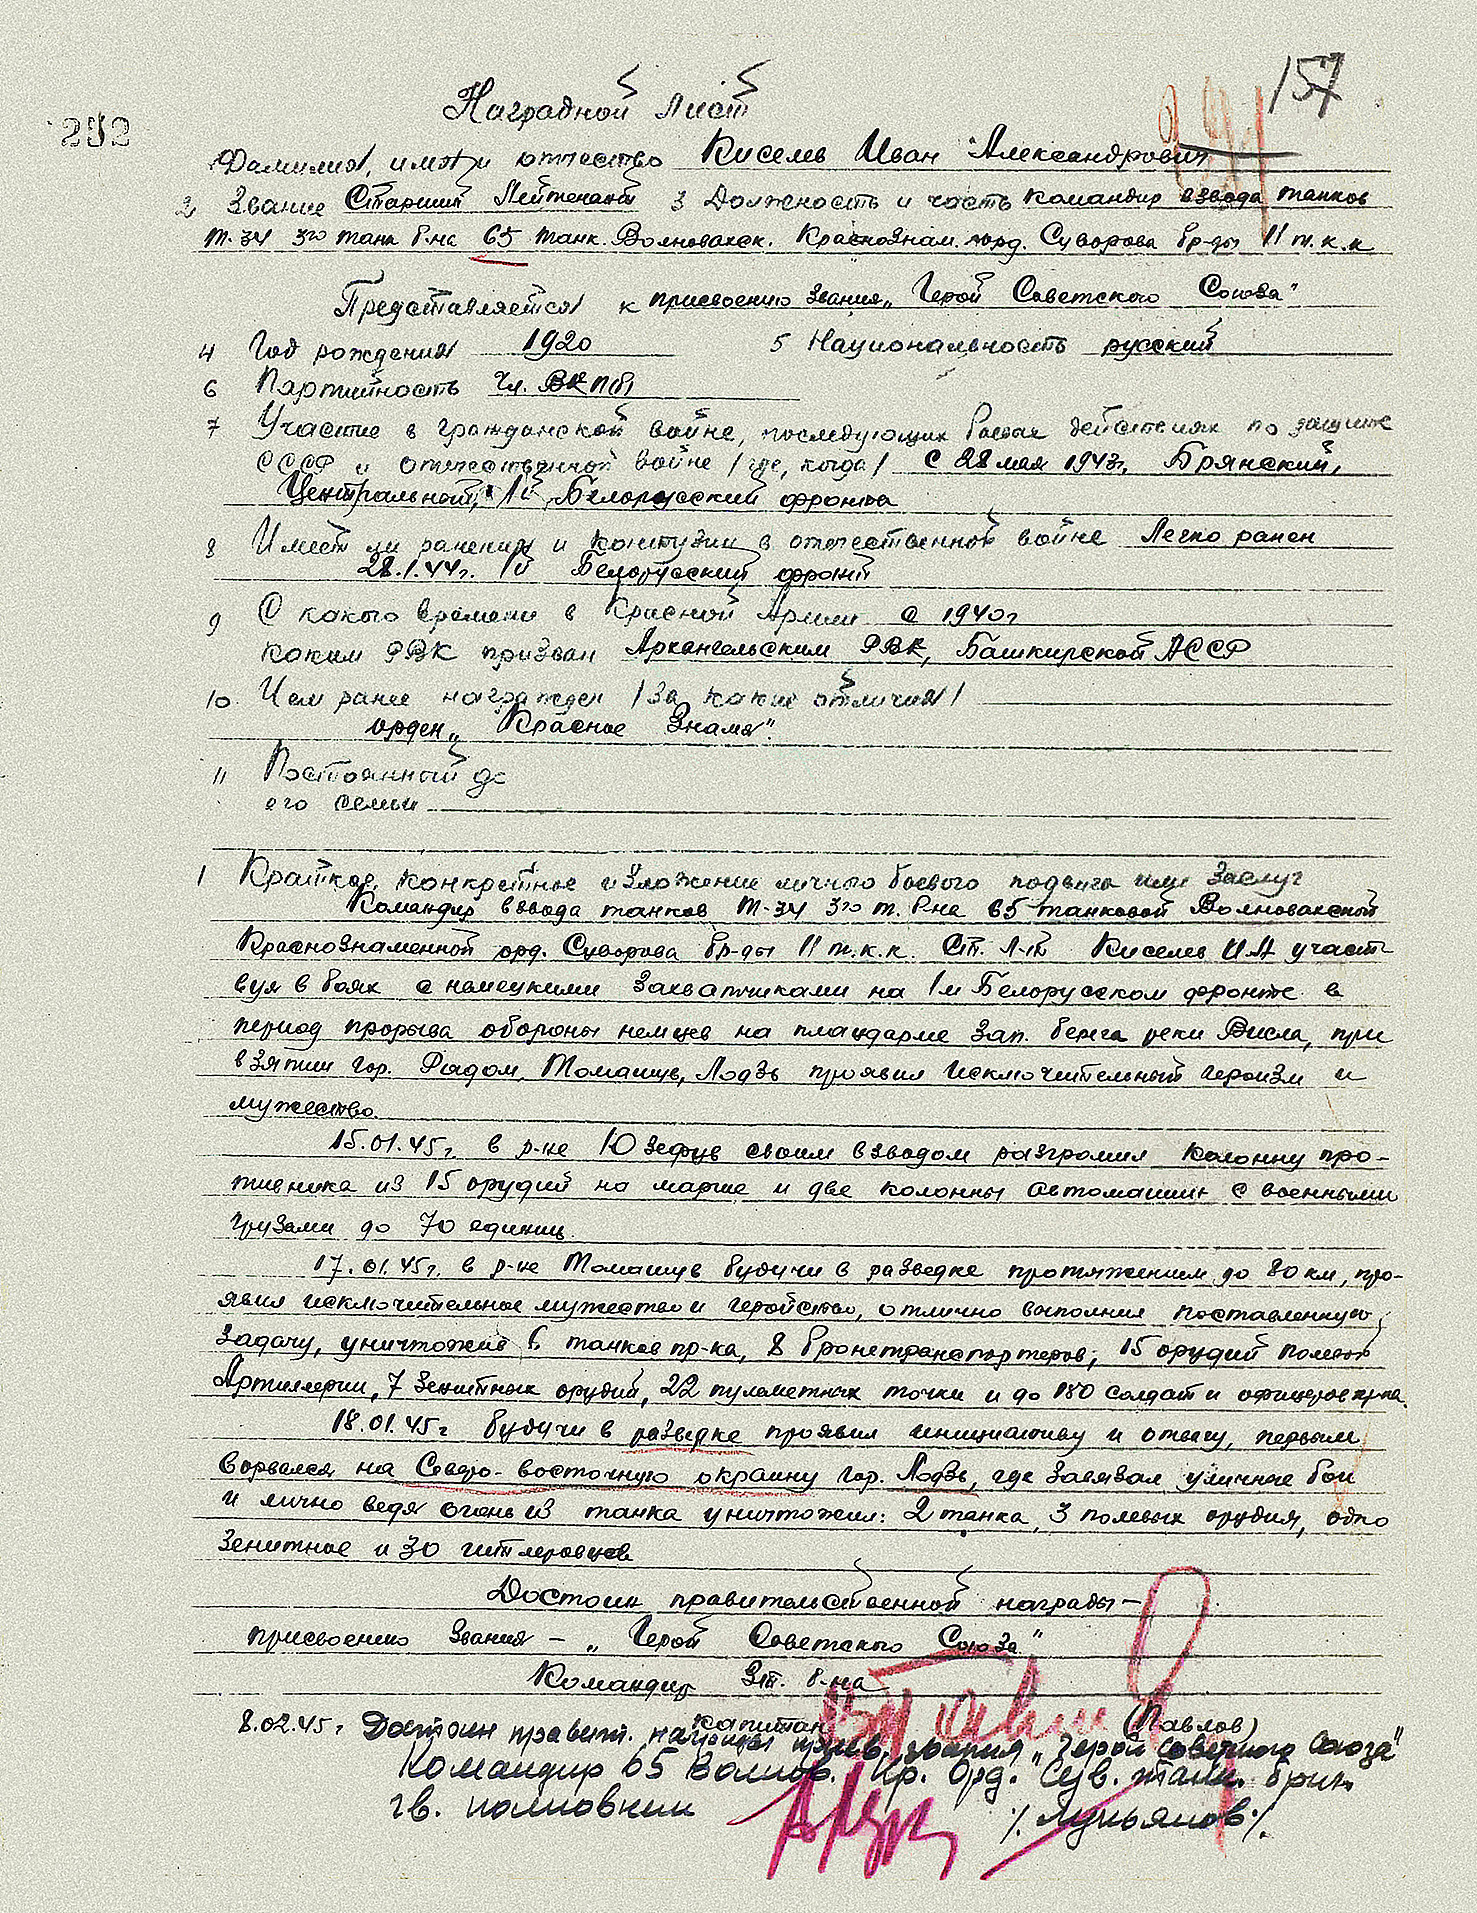 157
252
Наградной лист
Фамилия, имя и отчество Киселев Иван Александрович
2 Звание Старший Лейтенант 3 Должность и часть командир взвода танков
Т-34 3го танк б-на 65 танк. Волновахск. Краснознам. орд. Суворова бр-ды 11 т.к.к
Представляется к присвоению звания „Герой Советского Союза"
4 Год рождения 1920 5 Национальность русский
6 Партийность чл. ВКП(б)
7 Участие в гражданской войне, последующих боевых действиях по защите
СССР и отечественной войне /где, когда/ с 28 мая 1943г. Брянский,
Центральный, 1й Белорусский фронта
8 Имеет ли ранения и контузии в отечественной войне Легко ранен
28.1.44г. 1й Белорусский фронт
9 С какого времени в Красной Армии с 1940г
каким РВК призван Архангельским РВК, Башкирской АССР
10 Чем ранее награжден /за какие отличия/
орден „Красное Знамя".
11 Постоянный
его семьи
1 Краткое, конкретное изложение личного боевого подвига или заслуг
Командир взвода танков Т-34 3го т. б-на 65 танковой Волновахской
Краснознаменной орд. Суворова бр-ды 11 т.к.к. Ст. Л-т Киселев И.А участ-
вуя в боях с немецкими захватчиками на 1м Белорусском фронте в
период прорыва обороны немцев на плацдарме зап. берега реки Висла, при
взятии гор. Радом, Томашув, Лодзь проявил исключительный героизм и
мужество.
15.01.45г. в р-не Юзефув своим взводом разгромил колонну про-
тивника из 15 орудий на марше и две колонны автомашин с военными
грузами до 70 единиц.
17.01.45г. в р-не Томашув будучи в разведке протяжением до 80 км, про-
явил исключительное мужество и геройство, отлично выполнил поставленную
задачу, уничтожив 6 танков пр-ка, 8 бронетранспортеров, 15 орудий полевой
Артиллерии, 7 зенитных орудий, 22 пулеметных точки и до 180 солдат и офицеров пр-ка.
18.01.45г будучи в разведке проявил инициативу и отвагу, первым
ворвался на Северо-восточную окраину гор. Лодзь, где завязал уличные бои
и лично ведя огонь из танка уничтожил: 2 танка, 3 полевых орудия, одно
зенитное и 30 гитлеровцев
Достоин правительственной награды-
присвоению звания - „Герой Советского Союза"
Командир 3т. б-на
капитан (Павлов)
8.02.45г Достоин правит. награды присв. звания „Герой Советского Союза"
Командир 65 Волнов. Кр. Орд. Сув. танк. бриг.
гв. полковник /Лукьянов/.